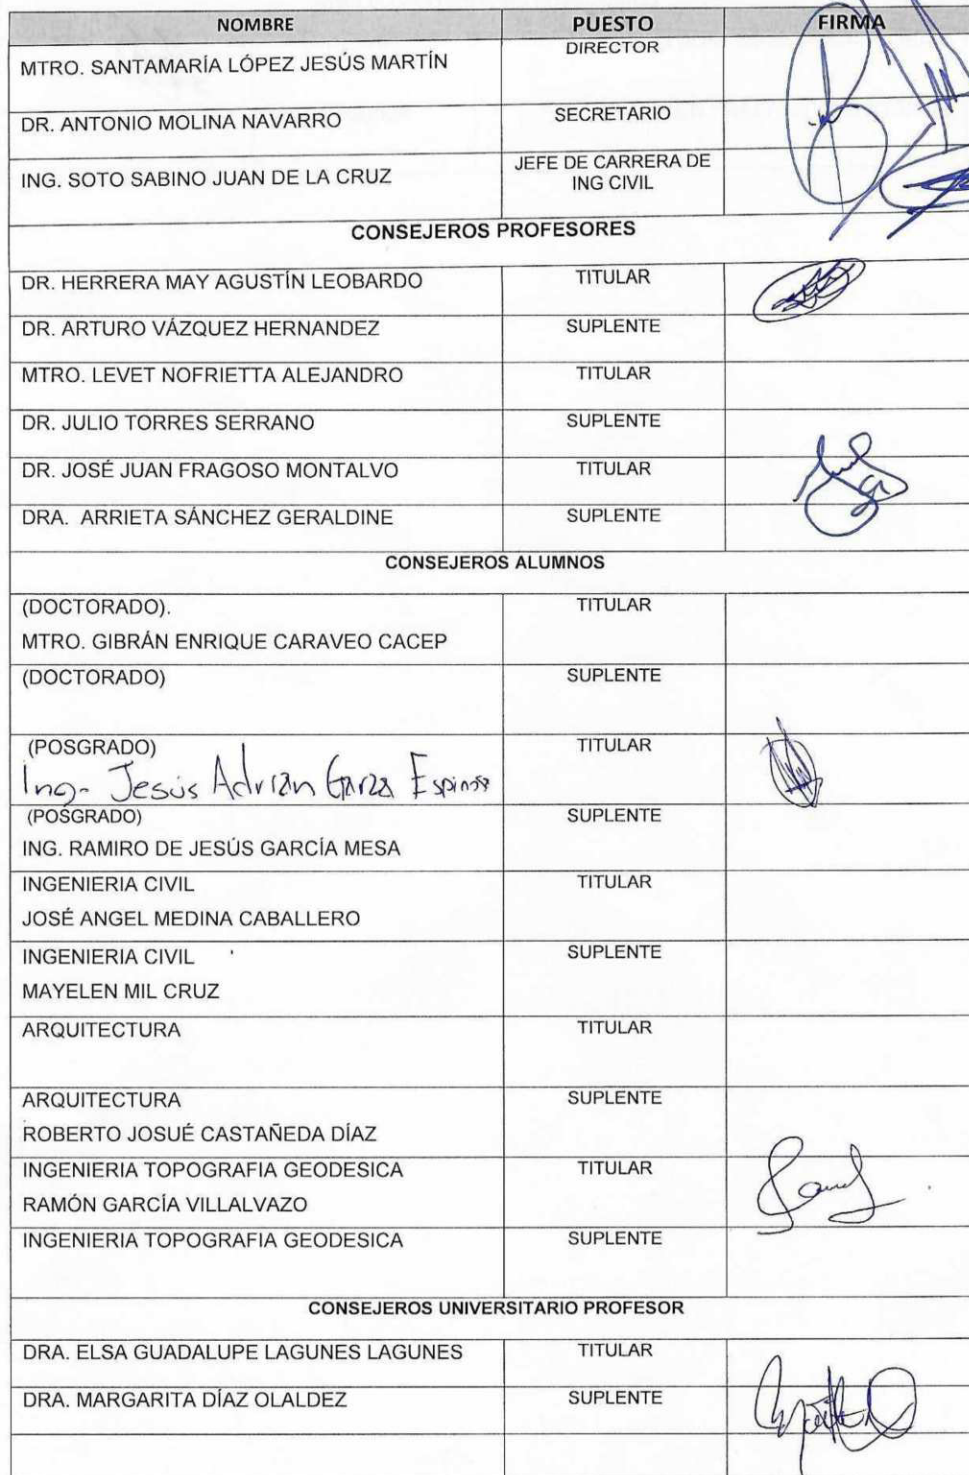 NOMBRE PUESTO FIRMA
MTRO. SANTAMARÍA LÓPEZ JESÚS MARTÍN DIRECTOR
DR. ANTONIO MOLINA NAVARRO SECRETARIO
ING. SOTO SABINO JUAN DE LA CRUZ JEFE DE CARRERA DE
ING CIVIL
CONSEJEROS PROFESORES
DR. HERRERA MAY AGUSTÍN LEOBARDO TITULAR
DR. ARTURO VÁZQUEZ HERNANDEZ SUPLENTE
MTRO. LEVET NOFRIETTA ALEJANDRO TITULAR
DR. JULIO TORRES SERRANO SUPLENTE
DR. JOSÉ JUAN FRAGOSO MONTALVO TITULAR
DRA. ARRIETA SÁNCHEZ GERALDINE SUPLENTE
CONSEJEROS ALUMNOS
(DOCTORADO). TITULAR
MTRO. GIBRÁN ENRIQUE CARAVEO CACEP
(DOCTORADO) SUPLENTE
(POSGRADO) TITULAR
Ing- Jesús Adrian Garza Espinosa
(POSGRADO) SUPLENTE
ING. RAMIRO DE JESÚS GARCÍA MESA
INGENIERIA CIVIL TITULAR
JOSÉ ANGEL MEDINA CABALLERO
INGENIERIA CIVIL SUPLENTE
MAYELEN MIL CRUZ
ARQUITECTURA TITULAR
ARQUITECTURA SUPLENTE
ROBERTO JOSUÉ CASTAÑEDA DÍAZ
INGENIERIA TOPOGRAFIA GEODESICA TITULAR
RAMÓN GARCÍA VILLALVAZO
INGENIERIA TOPOGRAFIA GEODESICA SUPLENTE
CONSEJEROS UNIVERSITARIO PROFESOR
DRA. ELSA GUADALUPE LAGUNES LAGUNES TITULAR
DRA. MARGARITA DÍAZ OLALDEZ SUPLENTE